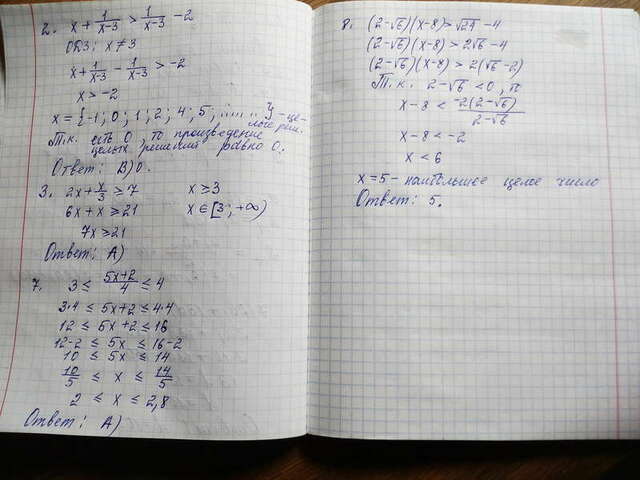 2. x + 1/(x-3) > 1/(x-3) - 2
ОДЗ: x ≠ 3
x + 1/(x-3) - 1/(x-3) > -2
x > -2
x = {-1; 0; 1; 2; 4; 5; ........} - це-
лые реш.
Т.к. есть 0, то произведение
целых решений равно 0.
Ответ: В) 0.
3. 2x + x/3 ≥ 7 x ≥ 3
6x + x ≥ 21 x ∈ [3; +∞)
7x ≥ 21
Ответ: А)
7. 3 ≤ (5x+2)/4 ≤ 4
3·4 ≤ 5x+2 ≤ 4·4
12 ≤ 5x+2 ≤ 16
12-2 ≤ 5x ≤ 16-2
10 ≤ 5x ≤ 14
10/5 ≤ x ≤ 14/5
2 ≤ x ≤ 2,8
Ответ: А)
8. (2-√6)(x-8) > √24 - 4
(2-√6)(x-8) > 2√6 - 4
(2-√6)(x-8) > 2(√6-2)
Т.к. 2-√6 < 0, то
x-8 < -2(2-√6)/(2-√6)
x-8 < -2
x < 6
x = 5 - наибольшое целое число
Ответ: 5.